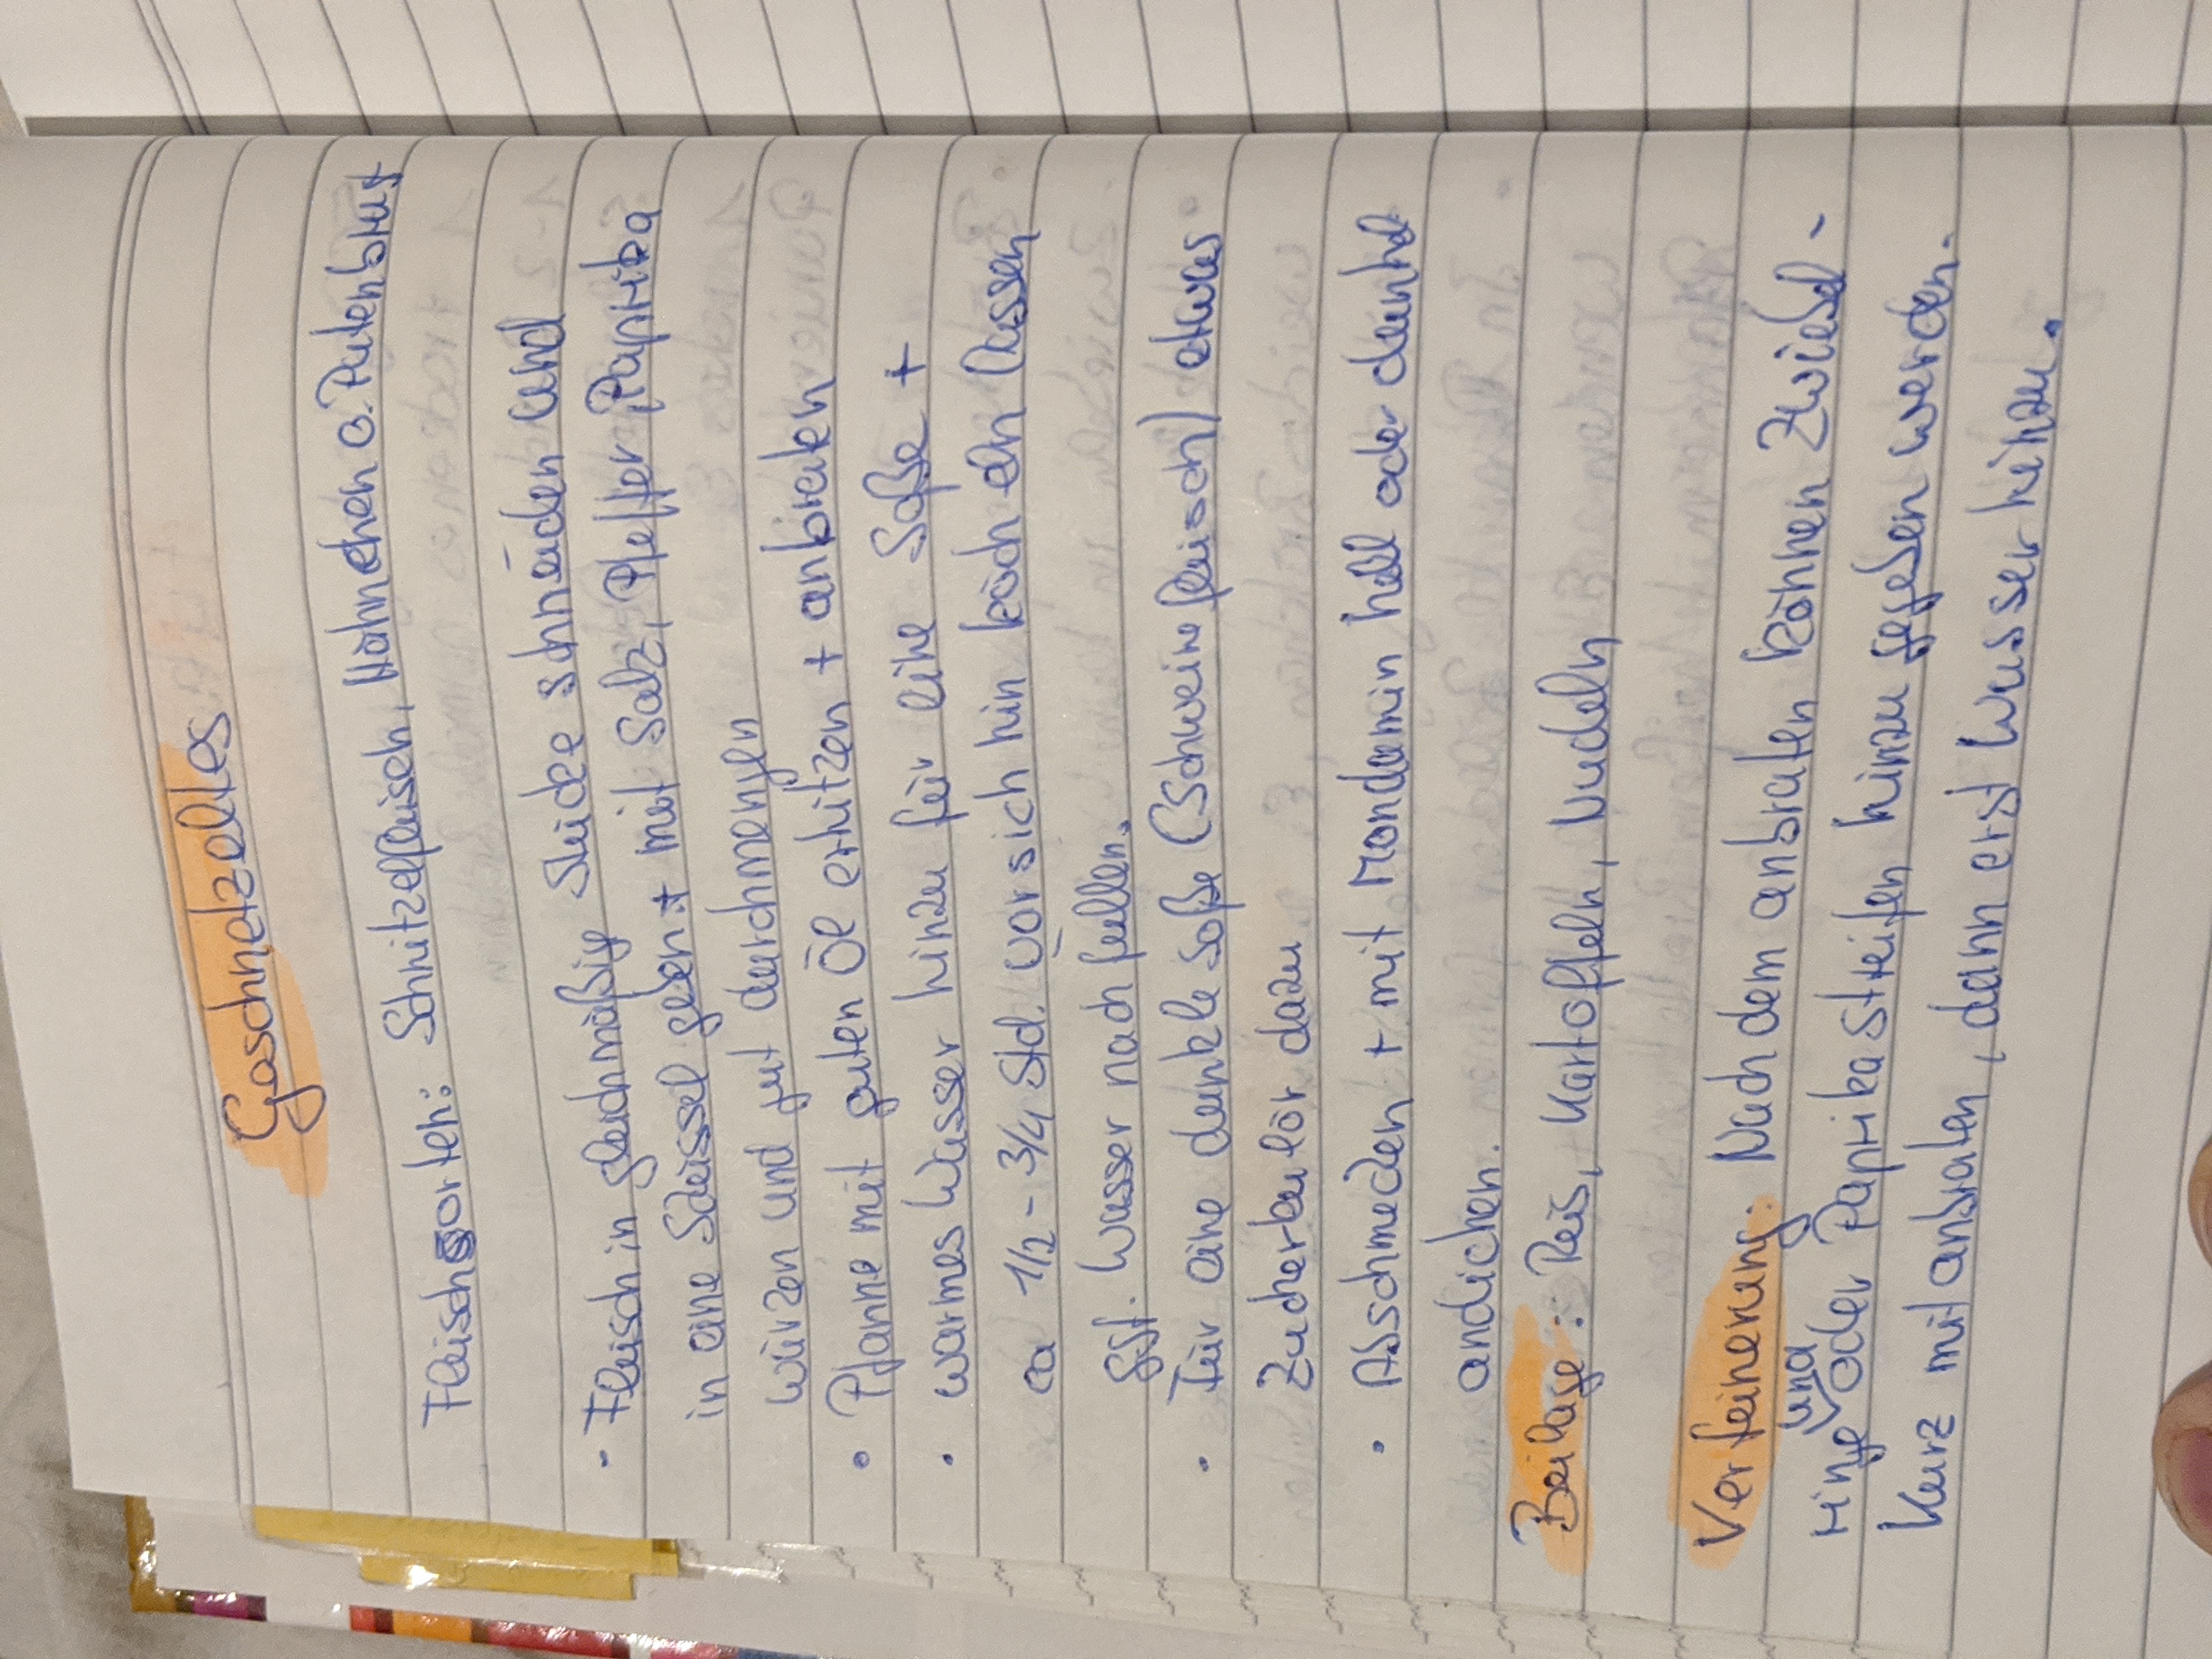 Gaschnetzeltes
Fleischsorten: Schnitzelfleisch, Hähnchen o. Putenbrust
• Fleisch in gleichmäßig Stücke schneiden und
in eine Schüssel geben + mit Salz, Pfeffer, Paprika
würzen und gut durchmengen
• Pfanne mit guten Öl erhitzen + anbraten
• warmes Wasser hinzu für eine Soße +
ca 1/2 - 3/4 Std. vor sich hin köcheln lassen
ggf. Wasser nach füllen.
• Für eine dunkle Soße (Schweinefleisch) etwas
Zuckerkulör dazu
• Abschmecken + mit Mondamin hell oder dunkel
andicken.
Beilage: Reis, Kartoffeln, Nudeln
Verfeinerung: Nach dem anbraten können Zwiebel-
ringe und oder Paprikastreifen hinzu gegeben werden.
Kurz mit anbraten, dann erst Wasser hinzu.